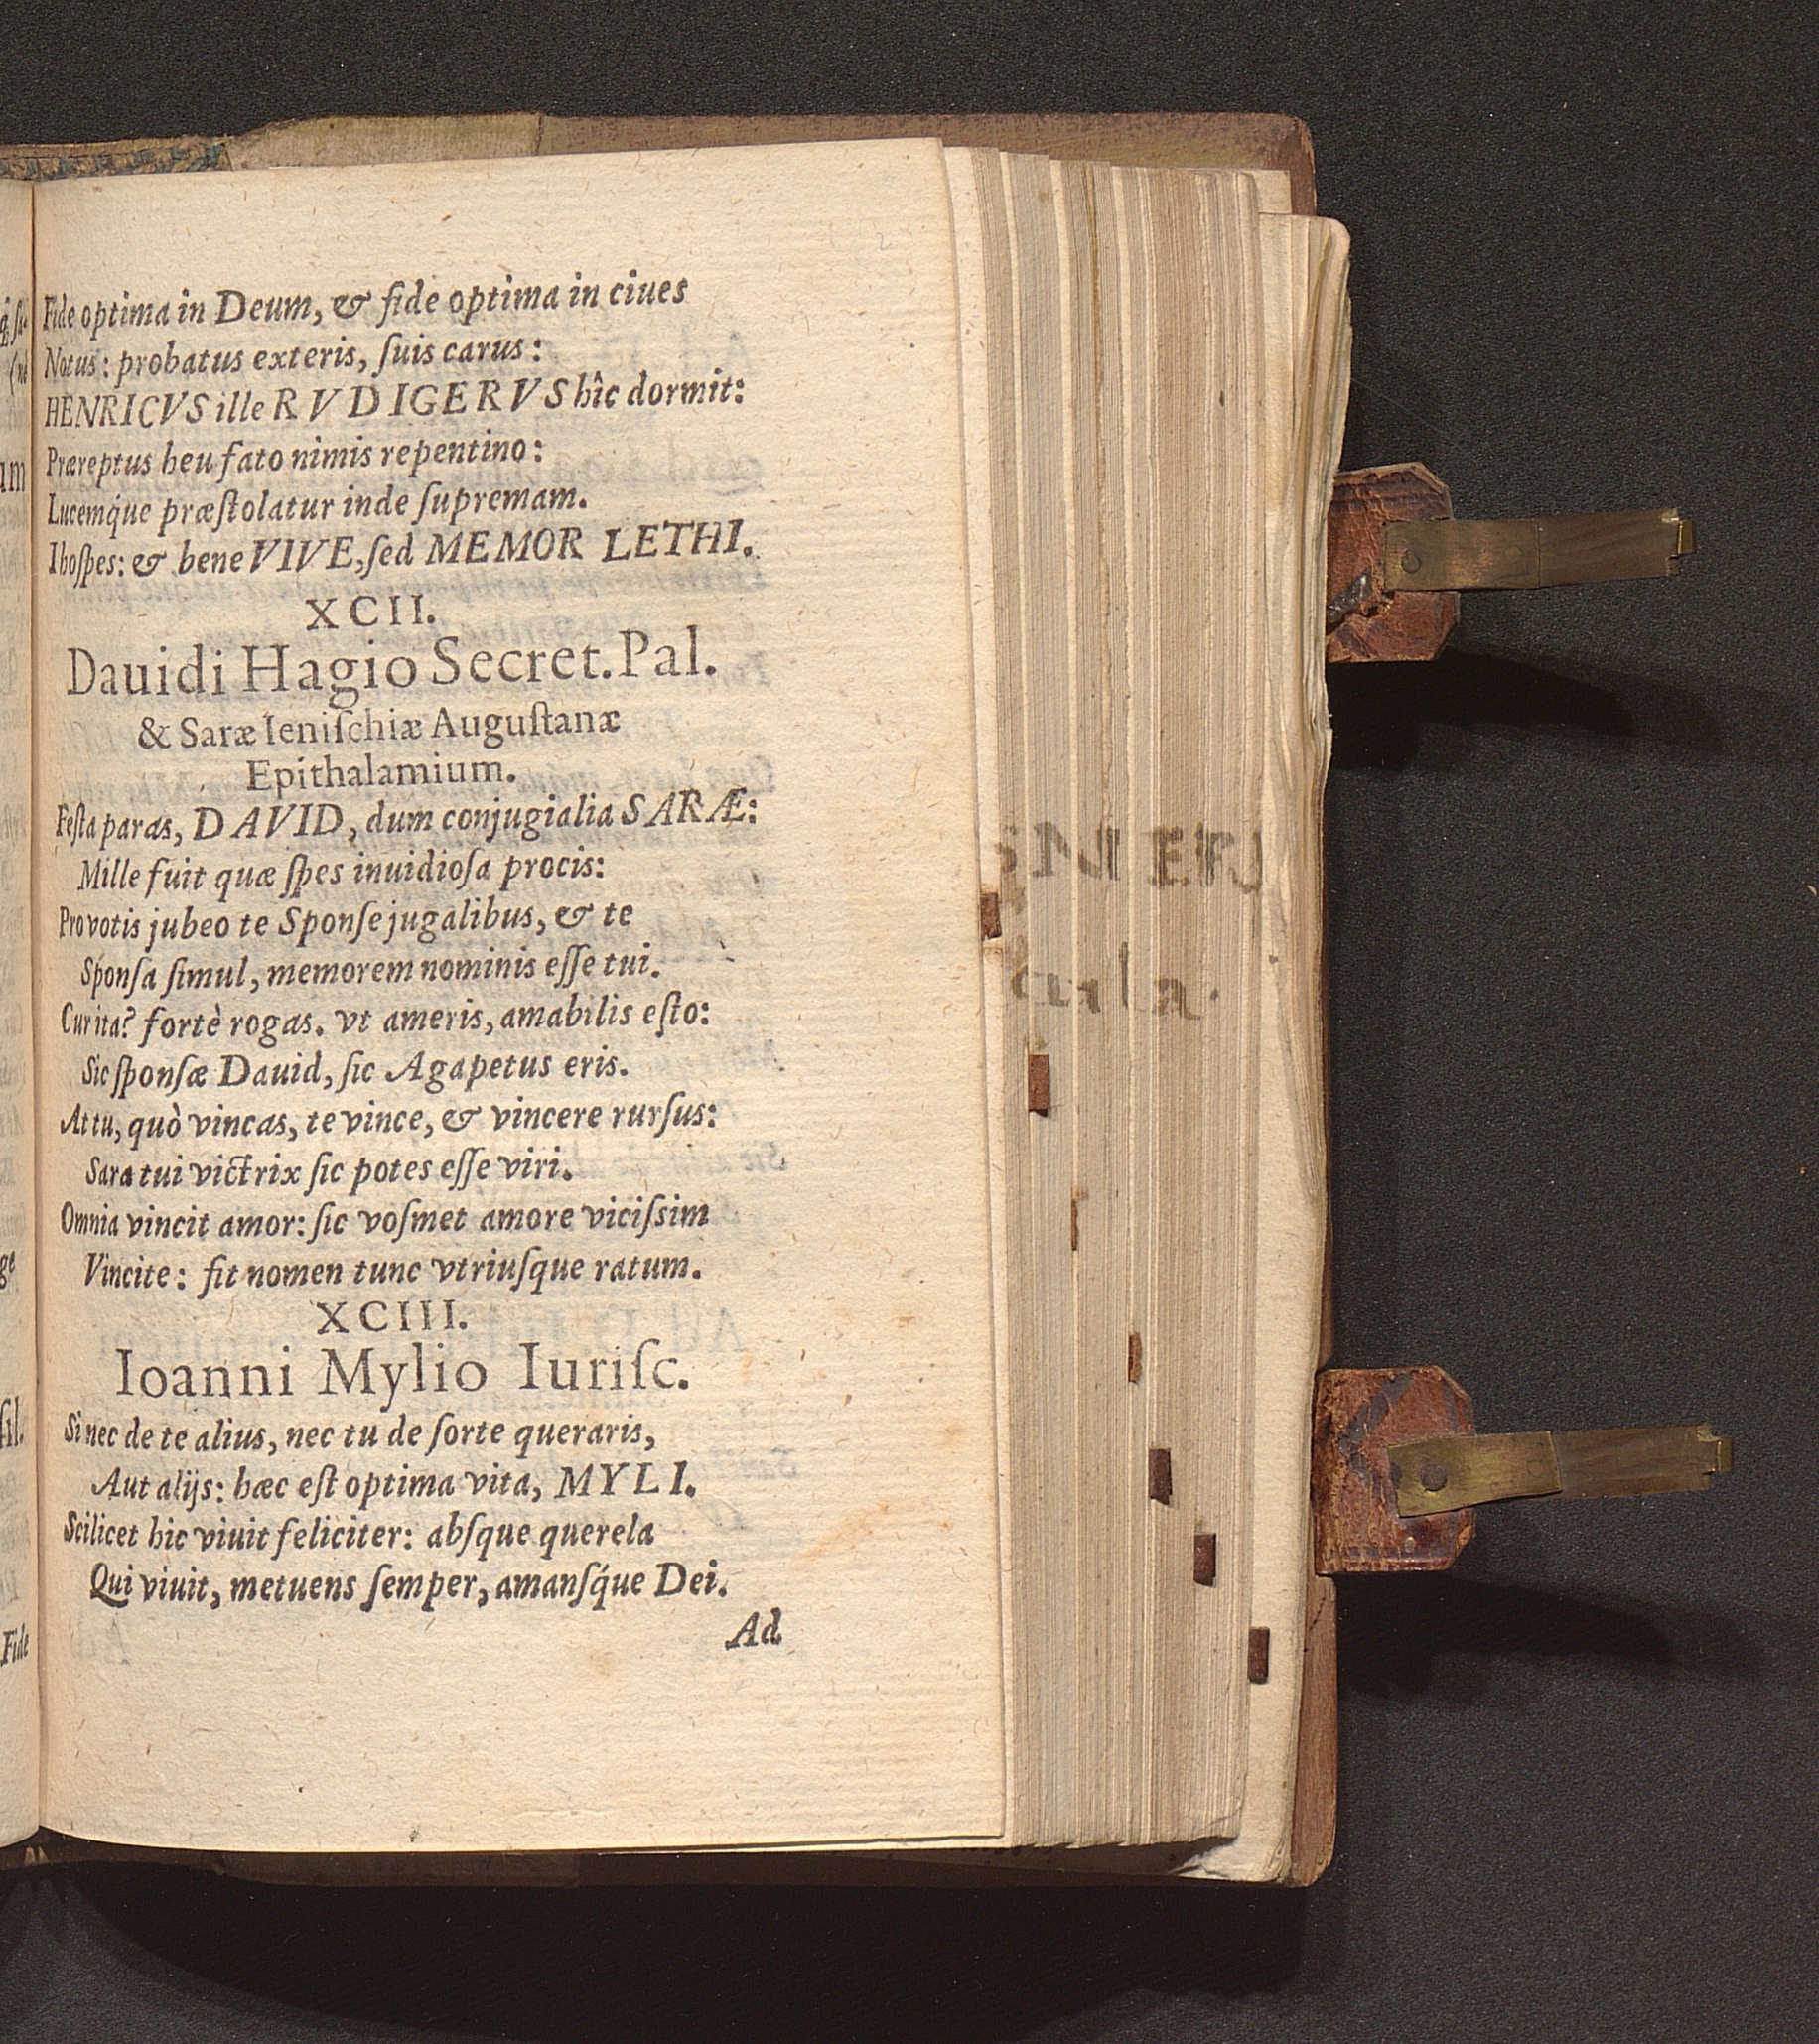 Fide optima in Deum, & fide optima in ciues
Notus: probatus exteris, ſuis carus:
HENRICVS ille RVDIGERVS hîc dormit:
Præreptus heu fato nimis repentino:
Lucemq́ue præſtolatur inde ſupremam.
I hoſpes: & bene VIVE, ſed MEMOR LETHI.
XCII.
Dauidi Hagio Secret. Pal.
& Saræ Ieniſchiæ Auguſtanæ
Epithalamium.
Feſta paras, DAVID, dum conjugialia SARÆ:
Mille fuit quæ ſpes inuidioſa procis:
Pro votis jubeo te Sponſe jugalibus, & te
Sponſa ſimul, memorem nominis eſſe tui.
Cur ita? fortè rogas. vt ameris, amabilis eſto:
Sic ſponſæ Dauid, ſic Agapetus eris.
At tu, quò vincas, te vince, & vincere rurſus:
Sara tui victrix ſic potes eſſe viri.
Omnia vincit amor: ſic voſmet amore viciſsim
Vincite: fit nomen tunc vtriuſque ratum.
XCIII.
Ioanni Mylio Iuriſc.
Si nec de te alius, nec tu de ſorte queraris,
Aut alijs: hæc eſt optima vita, MYLI.
Scilicet hic viuit feliciter: abſque querela
Qui viuit, metuens ſemper, amanſq́ue Dei.
Ad
Fide